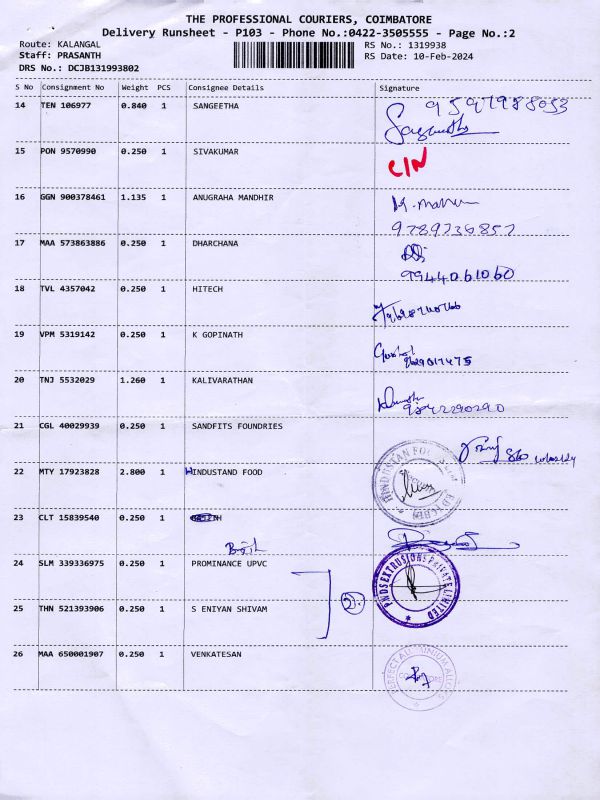 THE PROFESSIONAL COURIERS, COIMBATORE
Delivery Runsheet - P103 - Phone No.:0422-3505555 - Page No.:2
Route: KALANGAL RS No.: 1319938
Staff: PRASANTH RS Date: 10-Feb-2024
DRS No.: DCJB131993802
S No Consignment No Weight PCS Consignee Details Signature
14 TEN 106977 0.840 1 SANGEETHA
15 PON 9570990 0.250 1 SIVAKUMAR C/N
16 GGN 900378461 1.135 1 ANUGRAHA MANDHIR
17 MAA 573863886 0.250 1 DHARCHANA
9944061060
18 TVL 4357042 0.250 1 HITECH
19 VPM 5319142 0.250 1 K GOPINATH
20 TNJ 5532029 1.260 1 KALIVARATHAN
9842290290
21 CGL 40029939 0.250 1 SANDFITS FOUNDRIES
22 MTY 17923828 2.800 1 HINDUSTAND FOOD
23 CLT 15839540 0.250 1
24 SLM 339336975 0.250 1 PROMINANCE UPVC
PNDS EXTRUSIONS PRIVATE LIMITED
25 THN 521393906 0.250 1 S ENIYAN SHIVAM
26 MAA 650001907 0.250 1 VENKATESAN
PERFECT ALUMINIUM ALLOYS